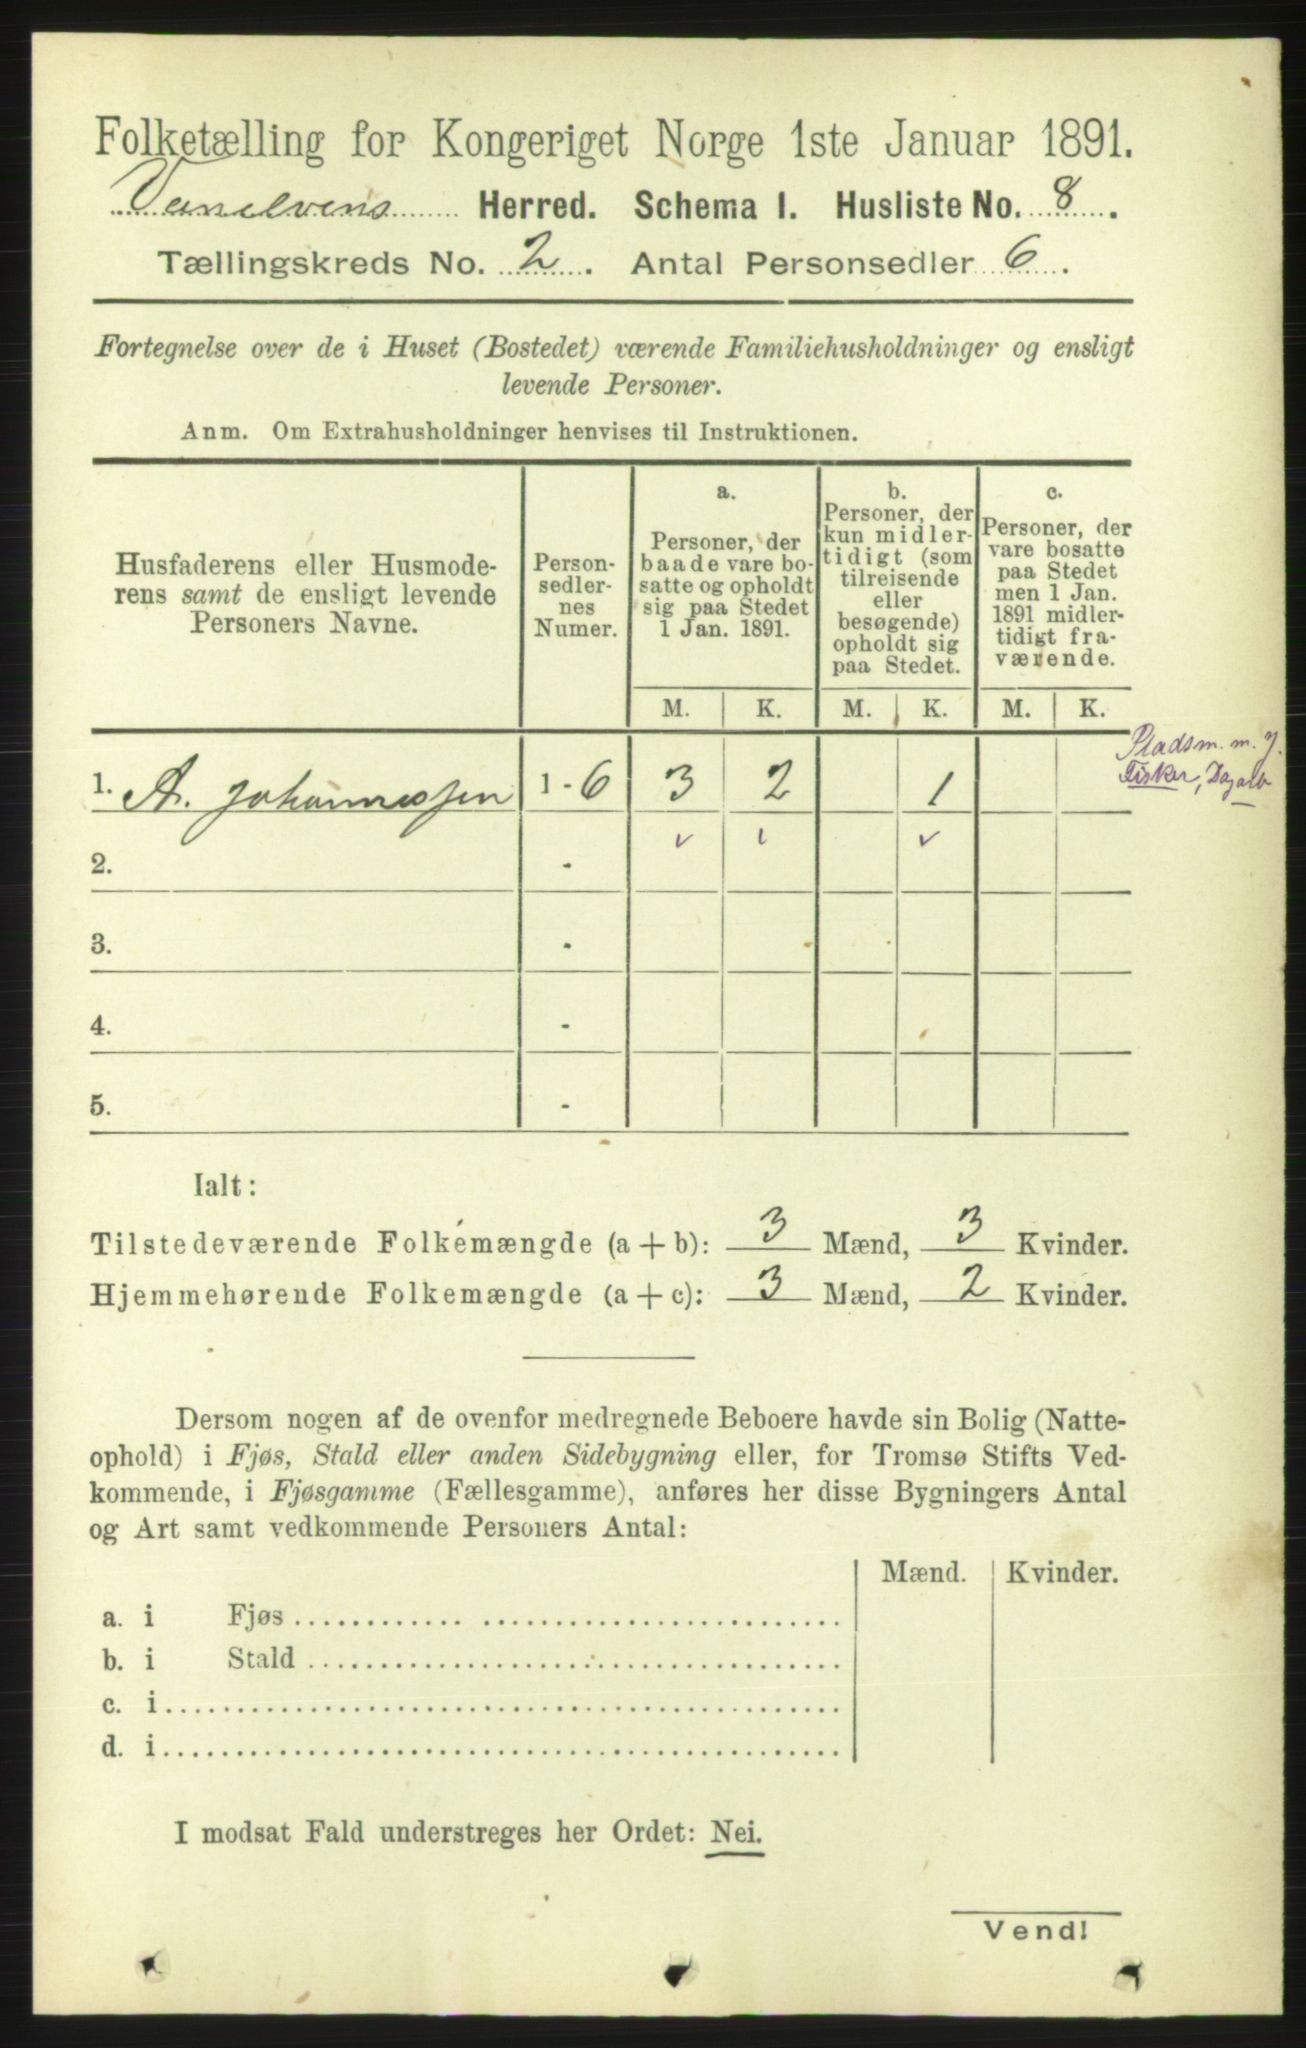 Folketælling for Kongeriget Norge 1ste Januar 1891.
Vanelvens Herred. Schema I. Husliste No. 8.
Tællingskreds No. 2. Antal Personsedler 6.
Fortegnelse over de i Huset (Bostedet) værende Familiehusholdninger og ensligt
levende Personer.
Anm. Om Extrahusholdninger henvises til Instruktionen.
Husfaderens eller Husmode-
rens samt de ensligt levende
Personers Navne.
Person-
sedler-
nes
Numer.
a.
Personer, der
baade vare bo-
satte og opholdt
sig paa Stedet
1 Jan. 1891.
b.
Personer, der
kun midler-
tidigt (som
tilreisende
eller
besøgende)
opholdt sig
paa Stedet.
c.
Personer, der
vare bosatte
paa Stedet
men 1 Jan.
1891 midler-
tidigt fra-
værende.
M. K. M. K. M. K.
Pladsm. m. J.
Fisker, Dagarb
1. A. Johannessen 1 - 6 3 2 1
2. -
3. -
4. -
5. -
Ialt:
Tilstedeværende Folkemængde (a + b): 3 Mænd, 3 Kvinder.
Hjemmehørende Folkemængde (a + c): 3 Mænd, 2 Kvinder.
Dersom nogen af de ovenfor medregnede Beboere havde sin Bolig (Natte-
ophold) i Fjøs, Stald eller anden Sidebygning eller, for Tromsø Stifts Ved-
kommende, i Fjøsgamme (Fællesgamme), anføres her disse Bygningers Antal
og Art samt vedkommende Personers Antal:
Mænd. Kvinder.
a. i Fjøs
b. i Stald
c. i
d. i
I modsat Fald understreges her Ordet: Nei.
Vend!